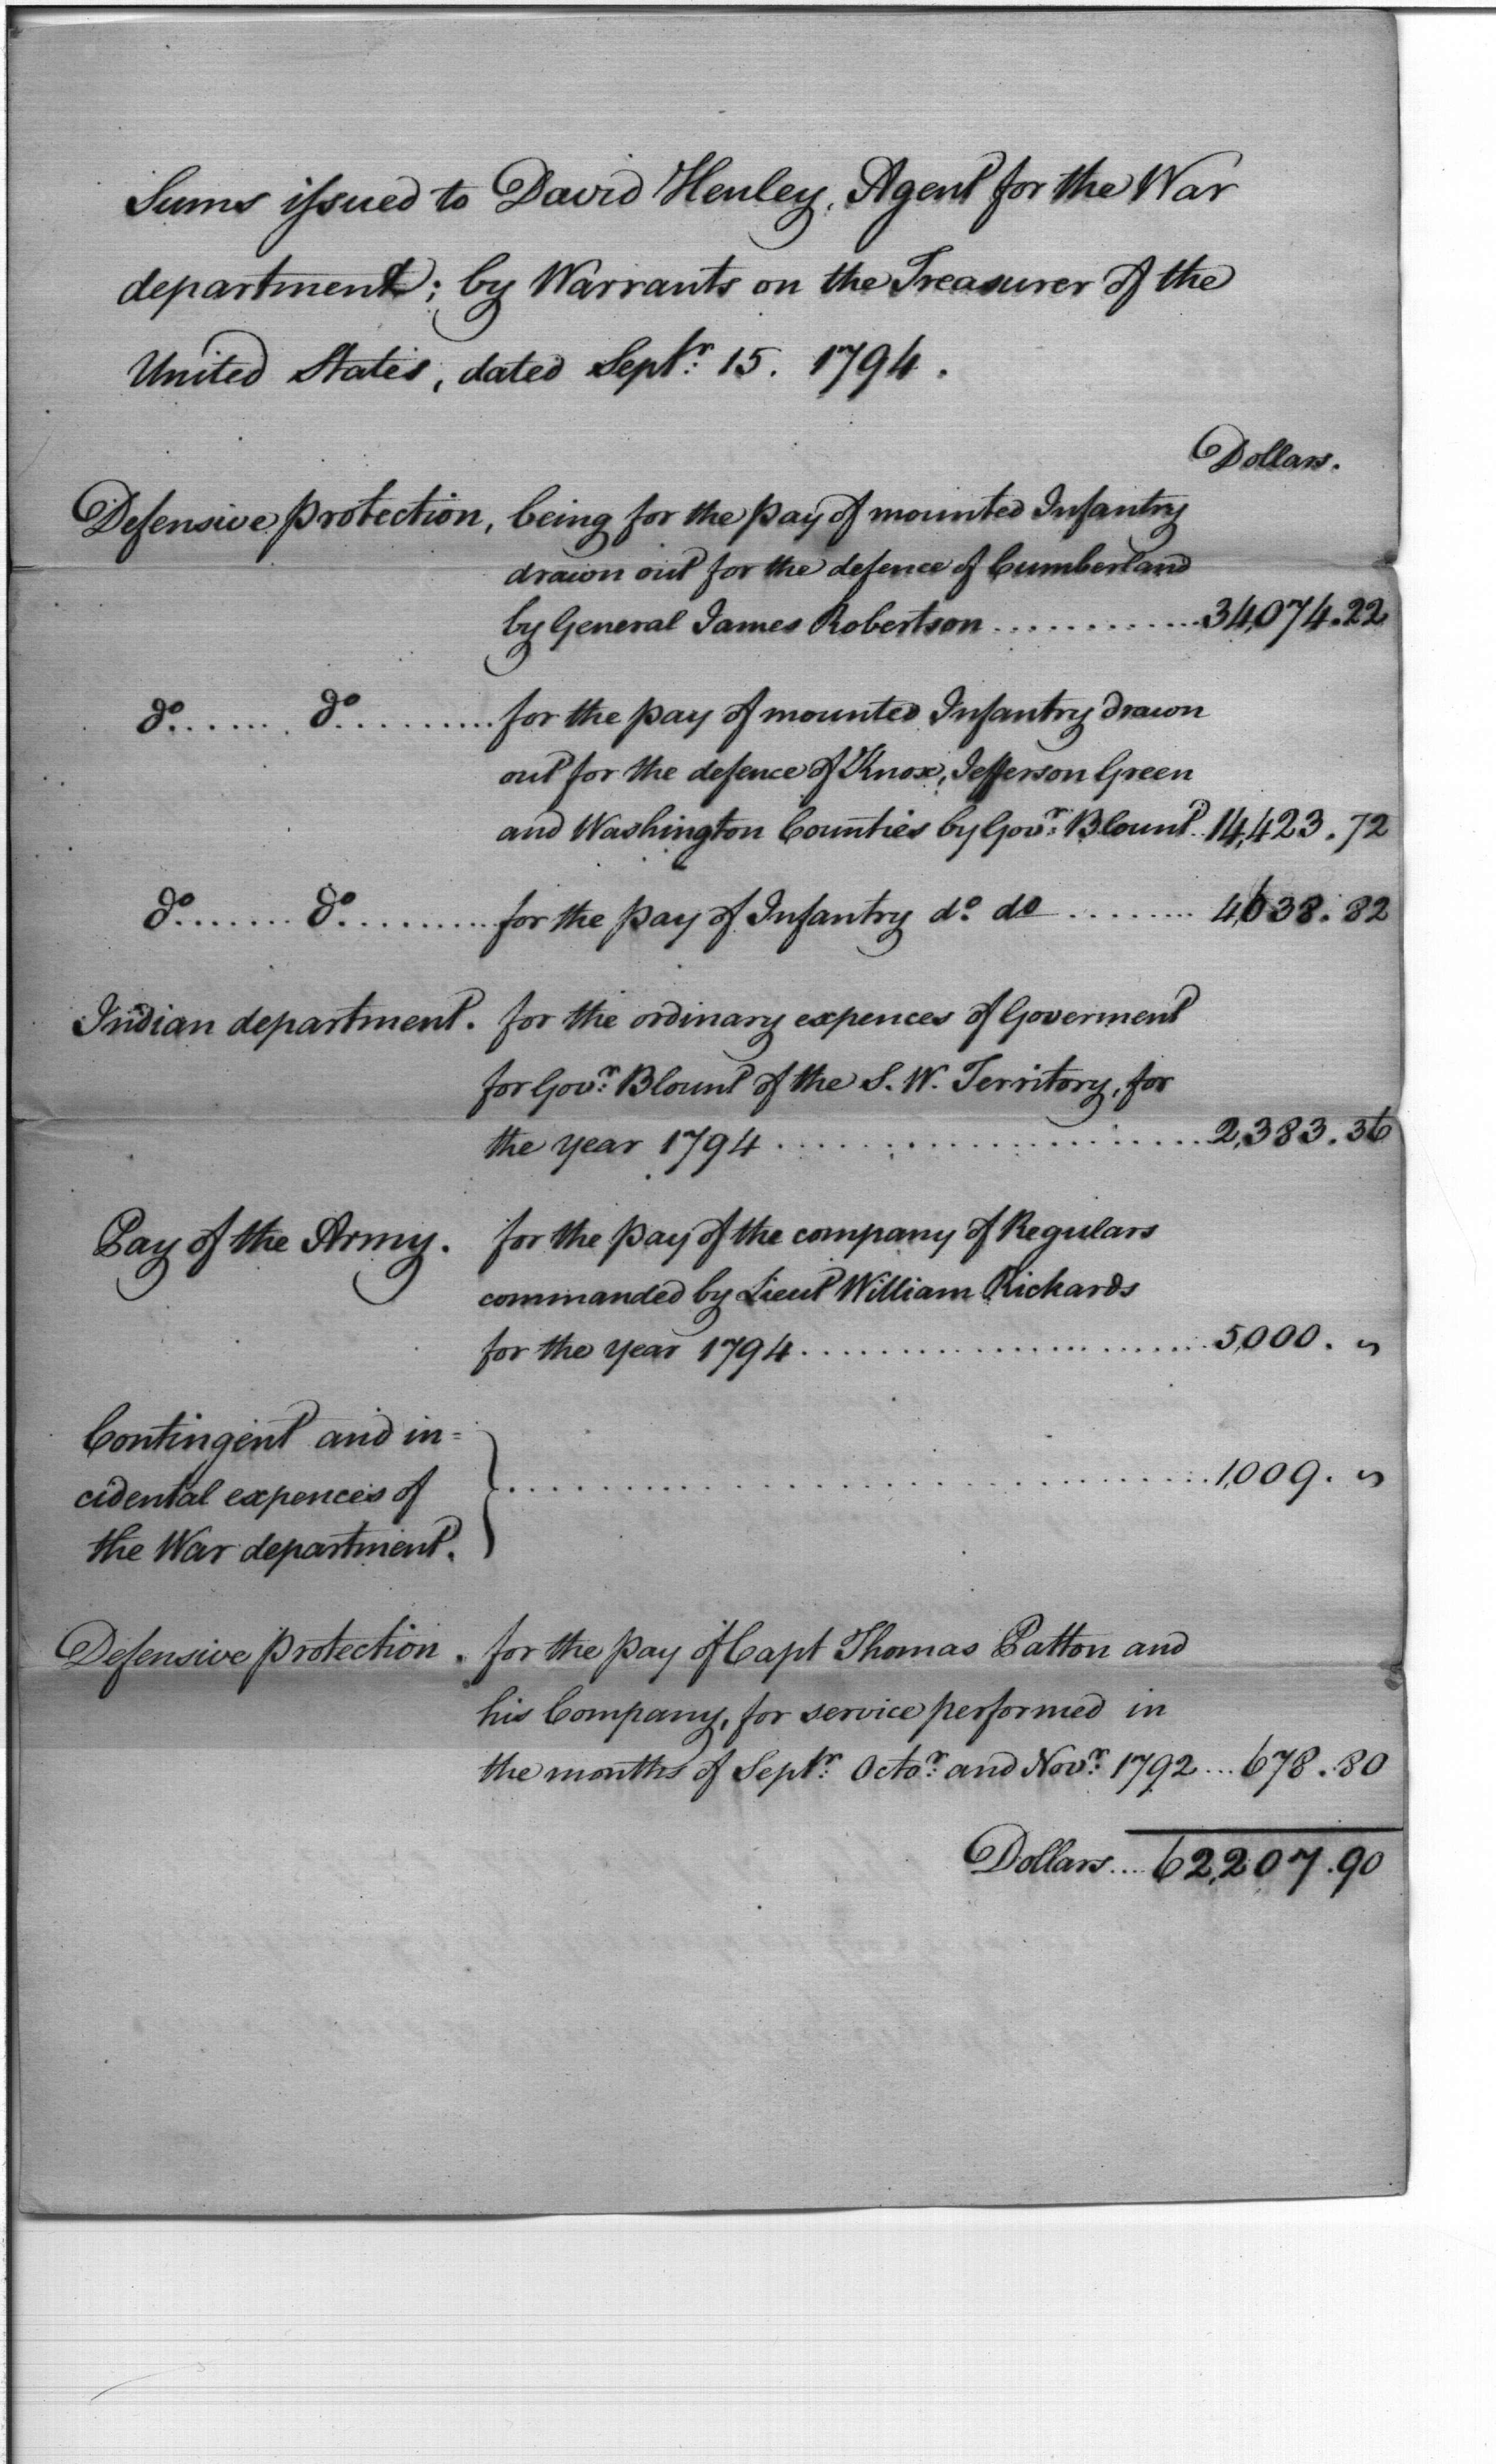 Sums issued to David Henley, Agent for the War
department; by Warrants on the Treasurer of the
United States, dated Septr: 15. 1794.
Dollars.
Defensive protection, being for the pay of mounted Infantry
drawn out for the defence of Cumberland
by General James Robertson ............ 34,074.22
do....... do.......... for the pay of mounted Infantry drawn
out for the defence of Knox, Jefferson Green
and Washington Counties by Govr: Blount.. 14,423.72
do....... do.......... for the pay of Infantry do. do ........ 4,638.82
Indian department. for the ordinary expences of Goverment
for Govr: Blount of the S. W. Territory, for
the year 1794 ...................... 2,383.36
Pay of the Army. for the pay of the company of Regulars
commanded by Lieut William Richards
for the year 1794 ...................... 5,000. "
Contingent and in=
cidental expences of } ............................ 1,009. "
the War department.
Defensive protection. for the pay of Capt Thomas Patton and
his Company, for service performed in
the months of Septr: Octor: and Novr: 1792 ... 678.80
Dollars.... 62,207.90